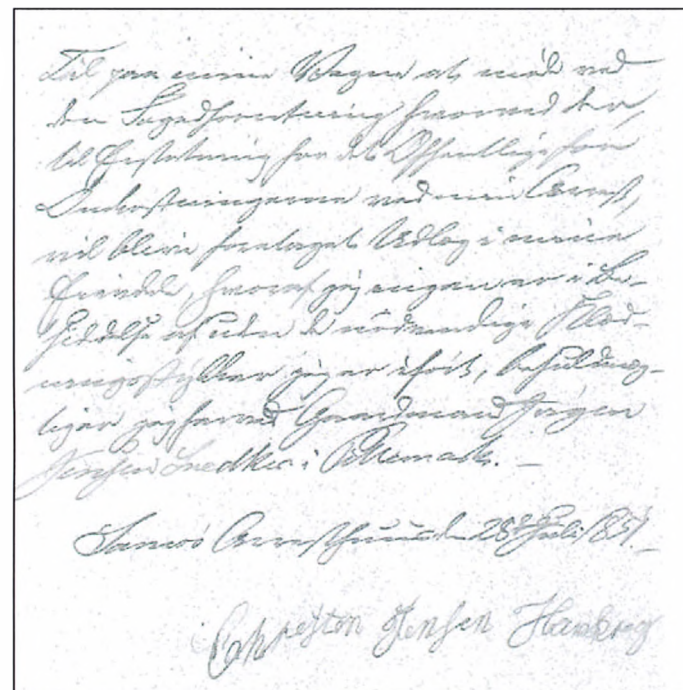 Til paa mine Vegne at møde ved
den Fogedforretning hvorved der,
til Erstatning for det Offentlige for
Omkostningerne ved min Arrest,
vil blive foretaget Udlæg i mine
Eiendele, hvoraf jeg ingen er i Be-
siddelse af uden de nödvendige Klæd-
ningsstykker jeg er iført, befuldmæg-
tiger jeg herved Gaardmand Jörgen
Jensen Snedker i Pillemark. —
Samsö Arresthuus den 28de Juli 1851. —
Chresten Jensen